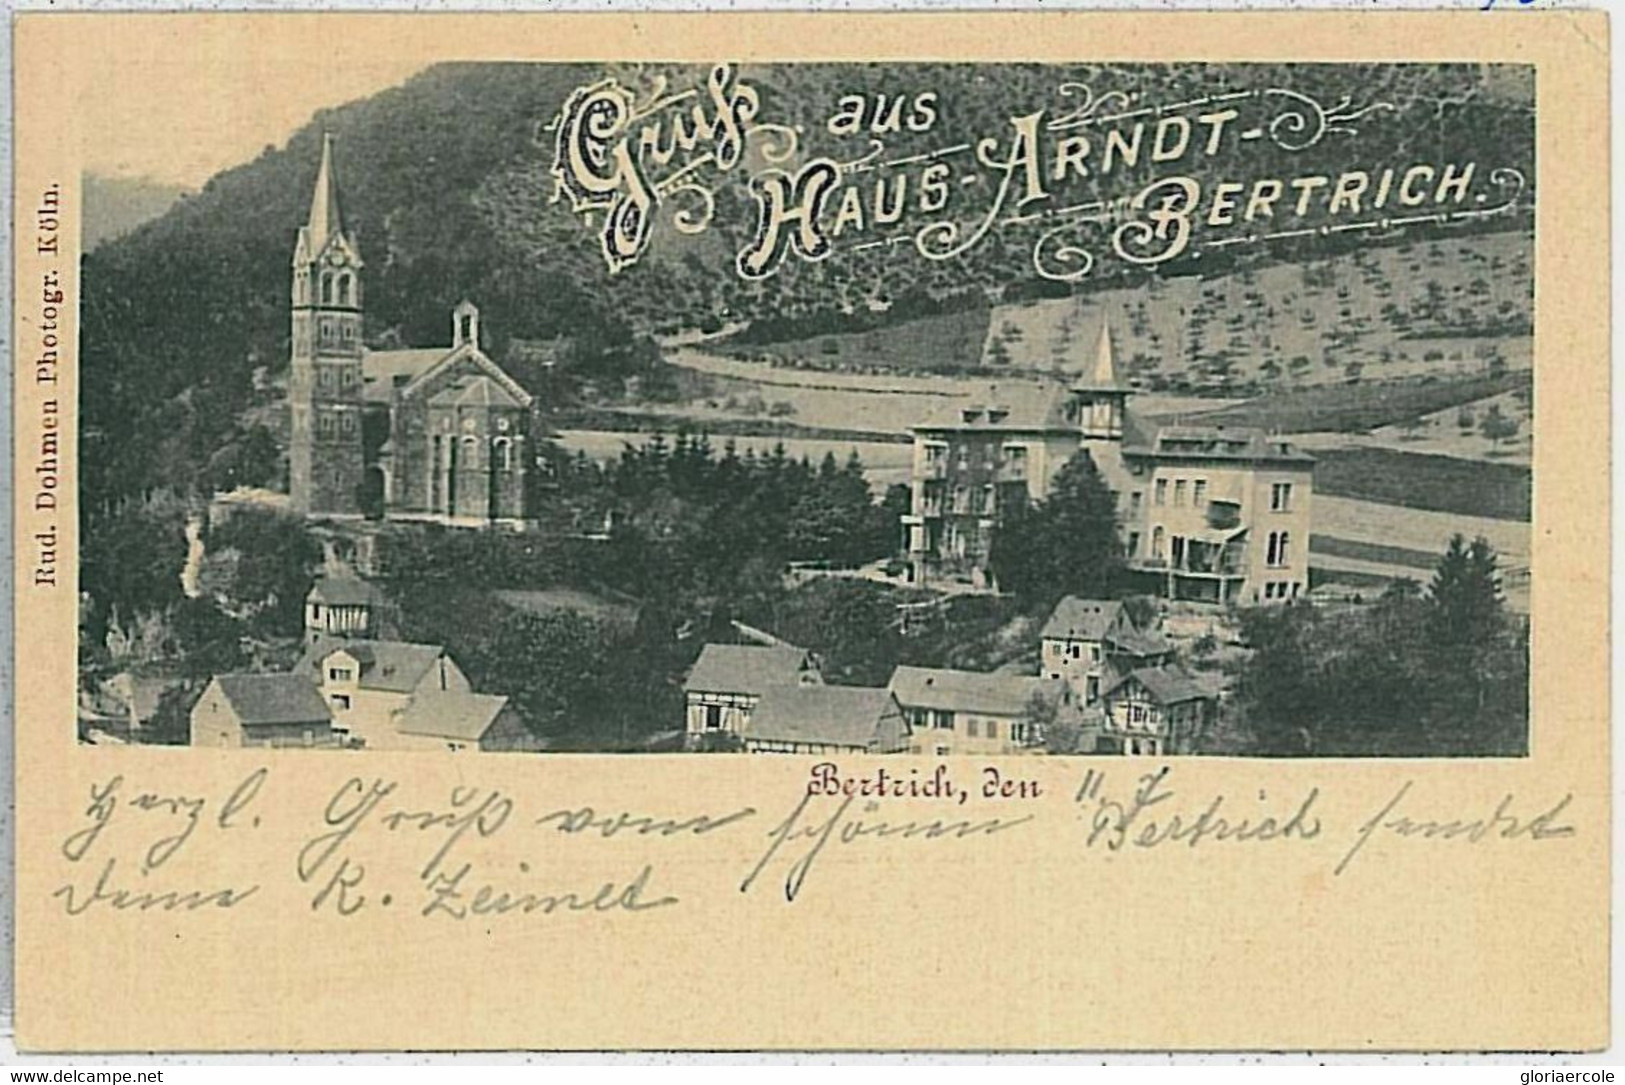 Gruß aus
HAUS-ARNDT-
BERTRICH.
Rud. Dohmen Photogr. Köln.
Bertrich, den 11. 7
Herzl. Gruß vom schönen Bertrich sendet
Deine K. Zeimet
www.delcampe.net
gloriaercole